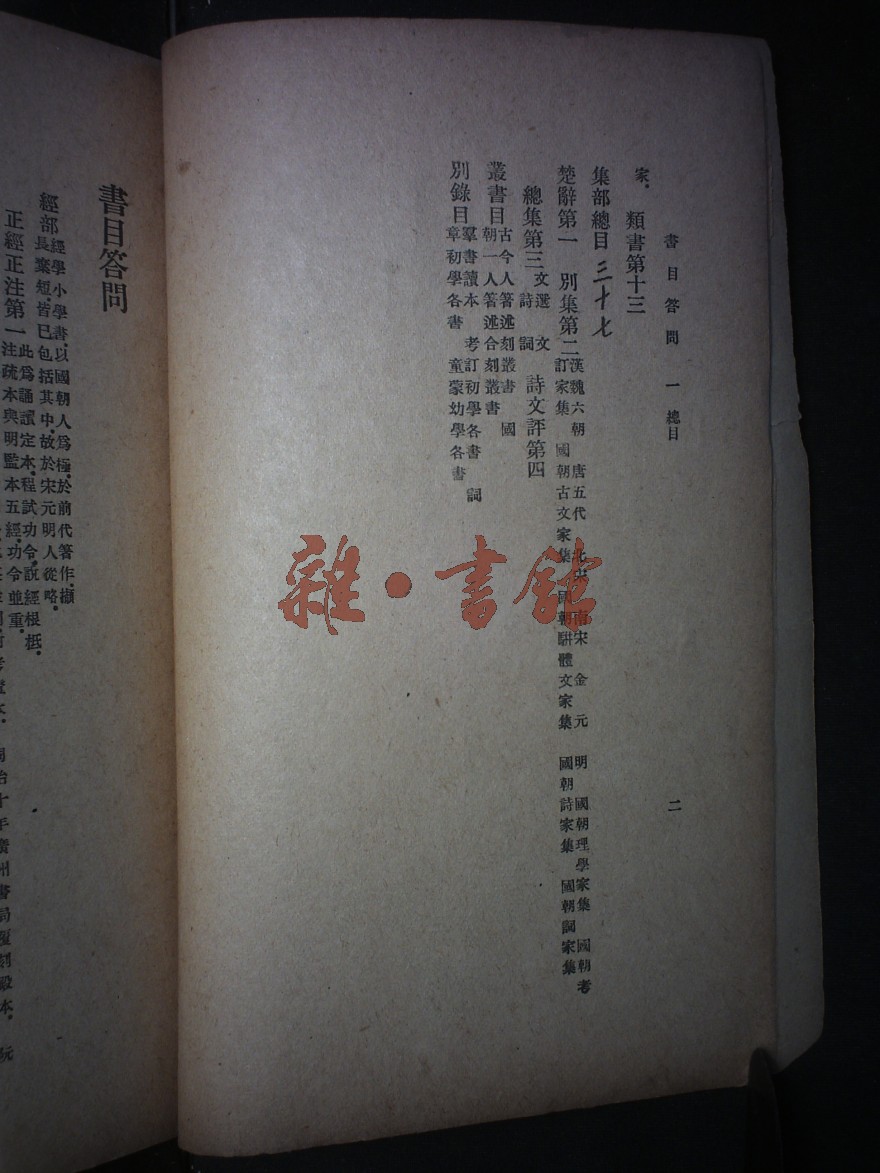 書目答問 一 總目 二
家。 類書第十三
集部總目 三十七
楚辭第一 別集第二 漢魏六朝 唐五代 北宋 南宋 金 元 明 國朝理學家集 國朝考
訂家集 國朝古文家集 國朝駢體文家集 國朝詩家集 國朝詞家集
總集第三 文選 文
詩 詞 詩文評第四
叢書目 古今人箸述合刻叢書 國
朝一人箸述合刻叢書
別錄目 羣書讀本 考訂初學各書 詞
章初學各書 童蒙幼學各書
雜·書館
書目答問
經部 經學小學書。以國朝人爲極。於前代箸作。擷
長棄短。皆已包括其中。故於宋元明人從略。
正經正注第一 此爲誦讀定本。程試功令。說經根柢。
注疏本與明監本五經。功令並重。
同治十年廣州書局覆刻殿本。 阮